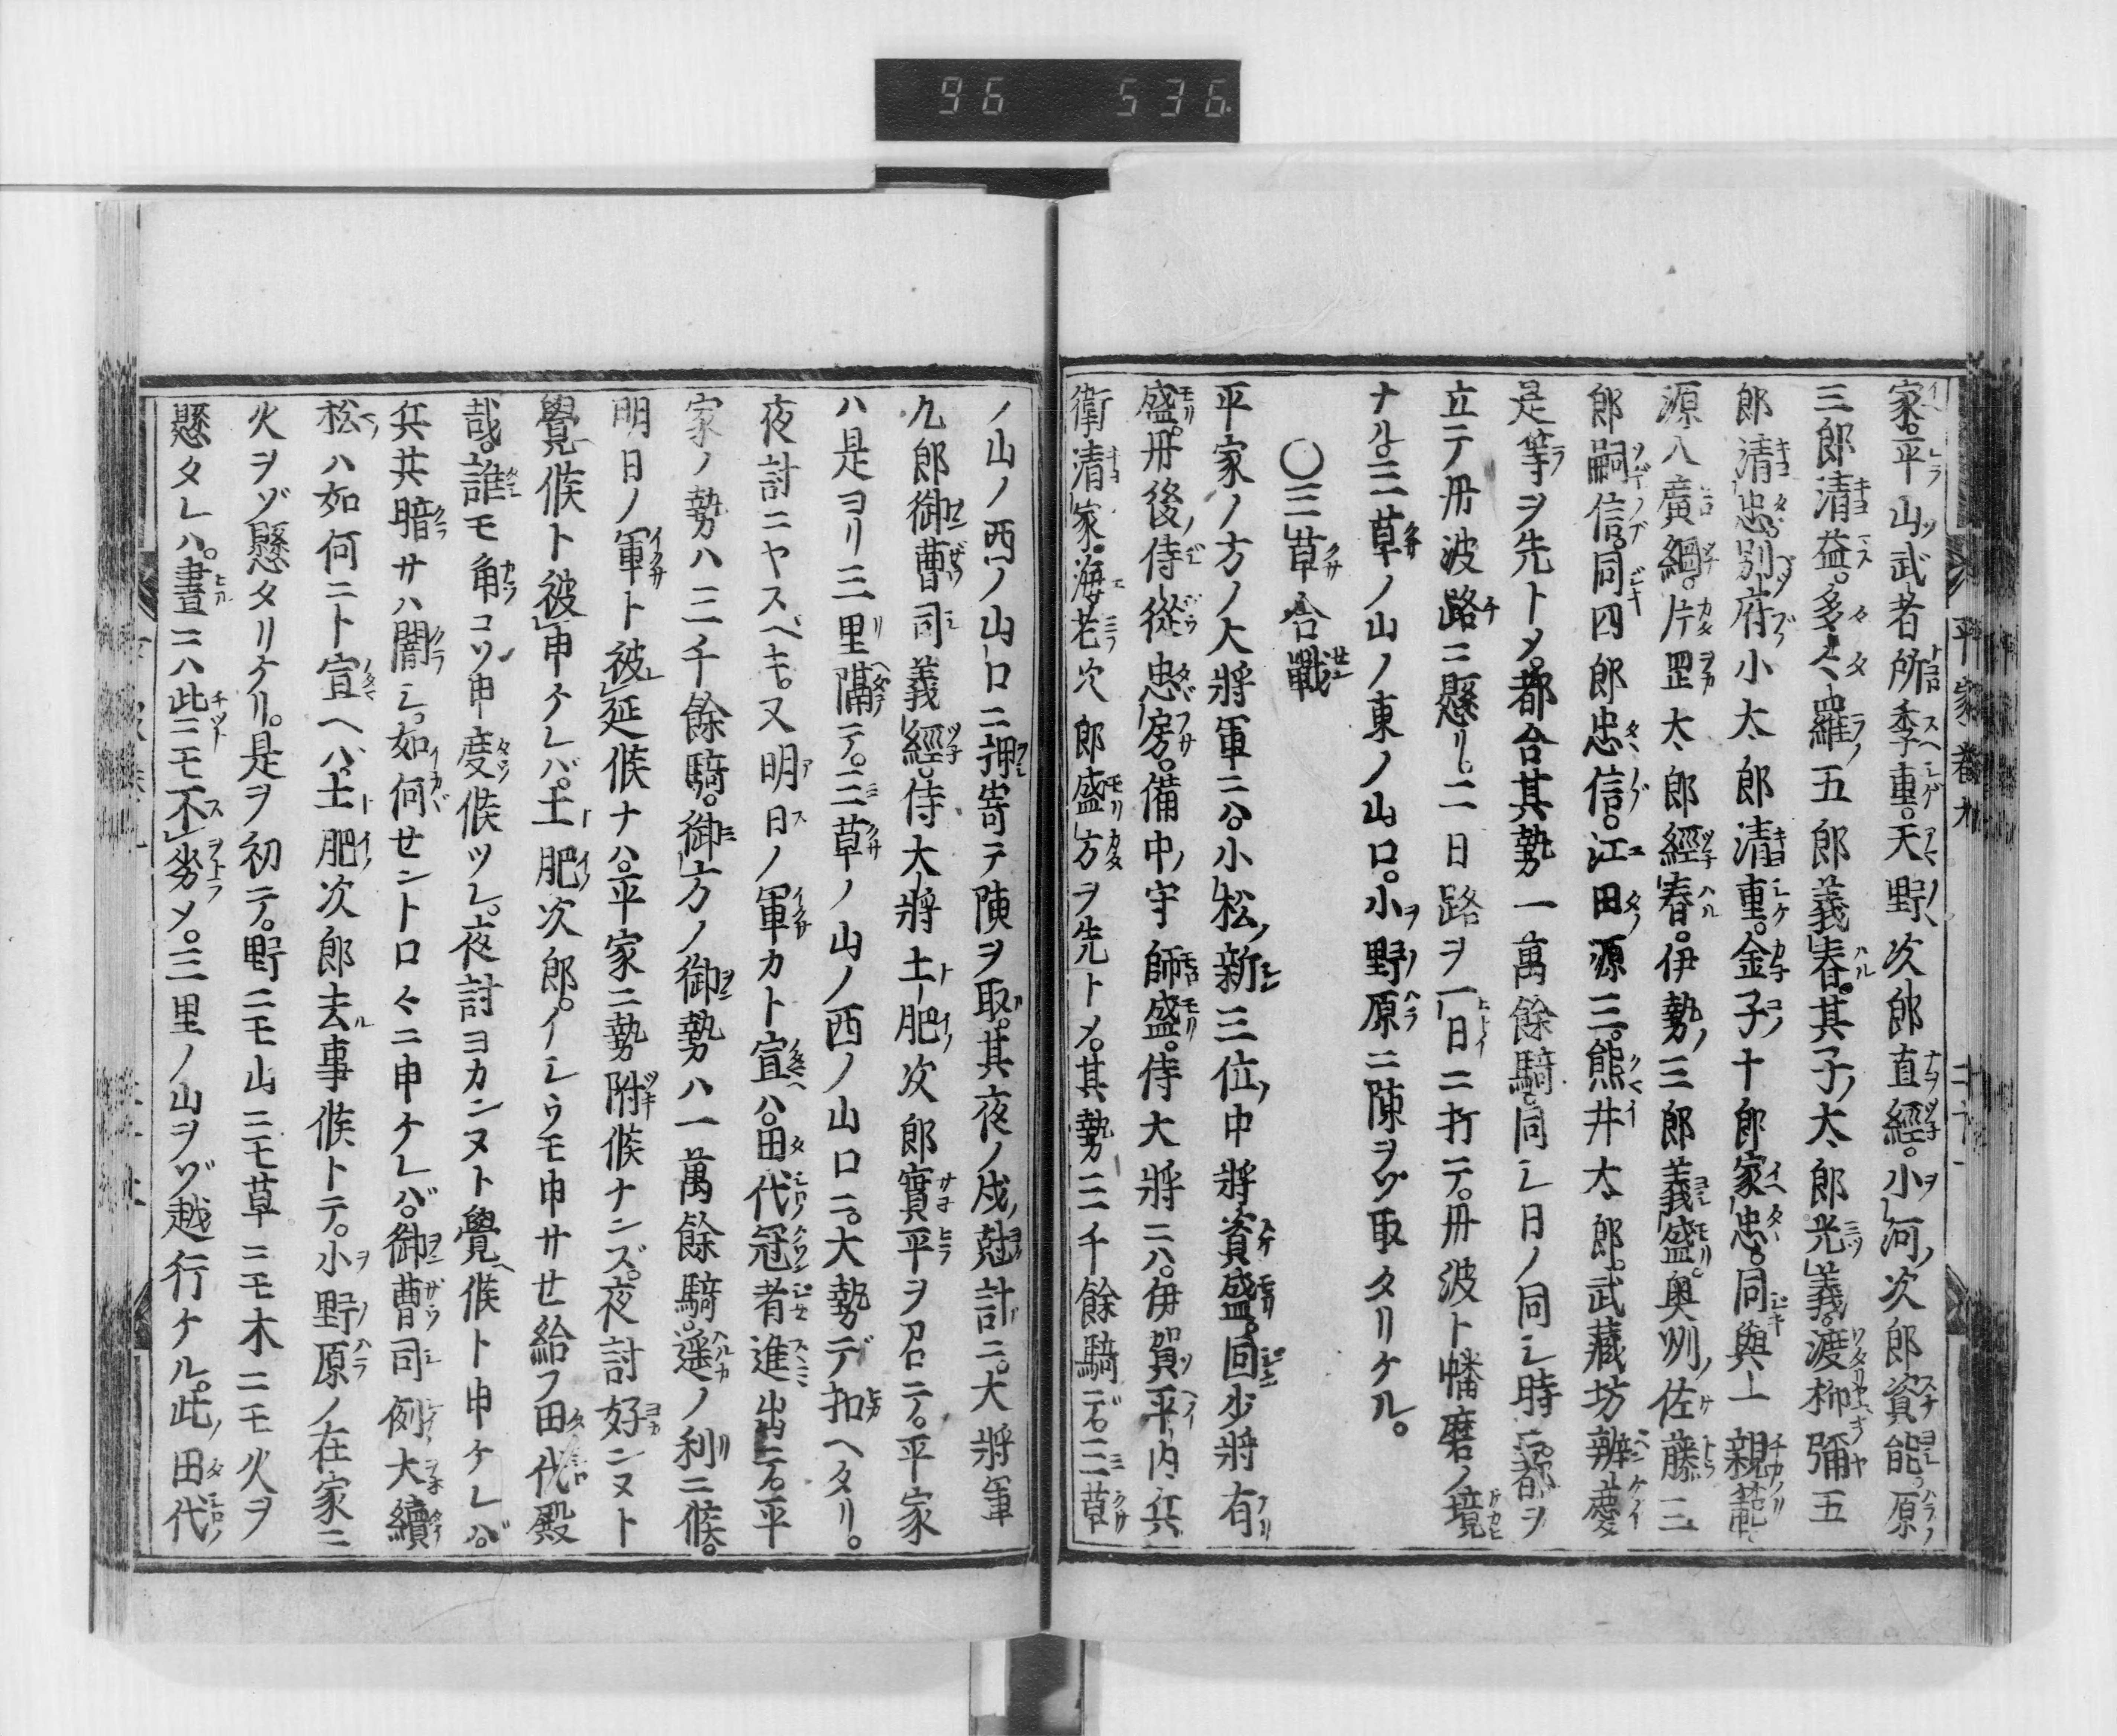 96 536
平家卷九
家。平山武者所季重。天野次郎直經。小河次郎資能。原
三郎清益。多々羅五郎義春。其子太郎光義。渡柳弥五
郎清忠。別府小太郎清重。金子十郎家忠。同與一親範
源八廣綱。片罡太郎經春。伊勢三郎義盛。奥刕佐藤三
郎嗣信。同四郎忠信。江田源三。熊井太郎。武藏坊辨慶
是等ヲ先トメ。都合其勢一萬餘騎。同シ日ノ同シ時ニ。都ヲ
立テ丹波路ニ懸リ。二日路ヲ一日ニ打テ。丹波ト幡磨ノ境
ナル。三草ノ山ノ東ノ山口。小野原ニ陳ヲゾ取タリケル。
〇三草合戰
平家ノ方ノ大將軍ニハ。小松新三位中將資盛。同少將有
盛。丹後侍從忠房。備中守師盛。侍大將ニハ。伊賀平内兵
衛清家。海老次郎盛方ヲ先トメ。其勢三千餘騎デ。三草
ノ山ノ西ノ山口ニ押寄テ陳ヲ取。其夜ノ戌尅計ニ。大將軍
九郎御曹司義經。侍大將土肥次郎實平ヲ召ニテ。平家
ハ是ヨリ三里隔テ。三草ノ山ノ西ノ山口ニ。大勢デ扣ヘタリ。
夜討ニヤスベキ。又明日ノ軍カト宣ヘハ。田代冠者進出テ。平
家ノ勢ハ三千餘騎。御方ノ御勢ハ一萬餘騎。遥ノ利ニ候。
明日ノ軍ト被延候ナハ。平家ニ勢附候ナンズ。夜討好ンヌト
覺候ト被申ケレバ。土肥次郎。イシウモ申サセ給フ田代殿
哉。誰モ角コソ申度候ツレ。夜討ヨカンヌト覺候ト申ケレバ。
兵共暗サハ闇シ。如何セントロ々ニ申ケレバ。御曹司例大續
松ハ如何ニト宣ヘハ。土肥次郎去事候トテ。小野原ノ在家ニ
火ヲゾ懸タリケリ。是ヲ初テ。野ニモ山ニモ草ニモ木ニモ火ヲ
懸タレハ。晝ニハ此ニモ不劣メ。三里ノ山ヲゾ越行ケル。此田代